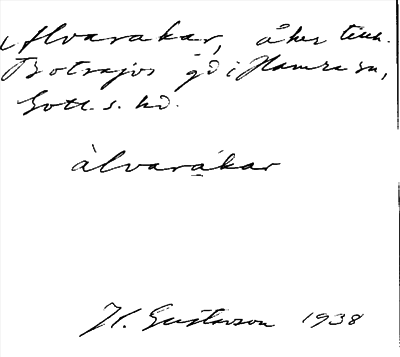 Alvarakar, åker tillh.
Botvajos gd i Hamra sn,
Gotl. s. hd.
àlvarákar
H. Gustavson 1938